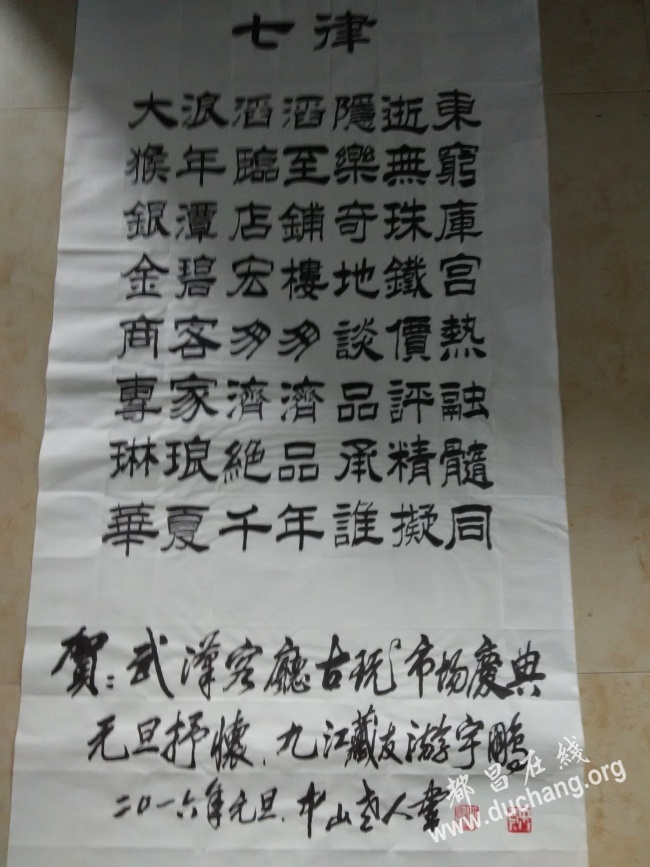 七律
大浪滔滔隱逝東
猴年臨至樂無窮
銀潭店鋪奇珠庫
金碧宏樓地鐵宮
商客多多談價熱
專家濟濟品評融
琳琅絕品承精髓
華夏千年誰擬同
賀：武漢客廳古玩市场慶典
元旦抒懷、九江藏友游宇鵬
二〇一六年元旦、中山老人書
都昌在线
www.duchang.org